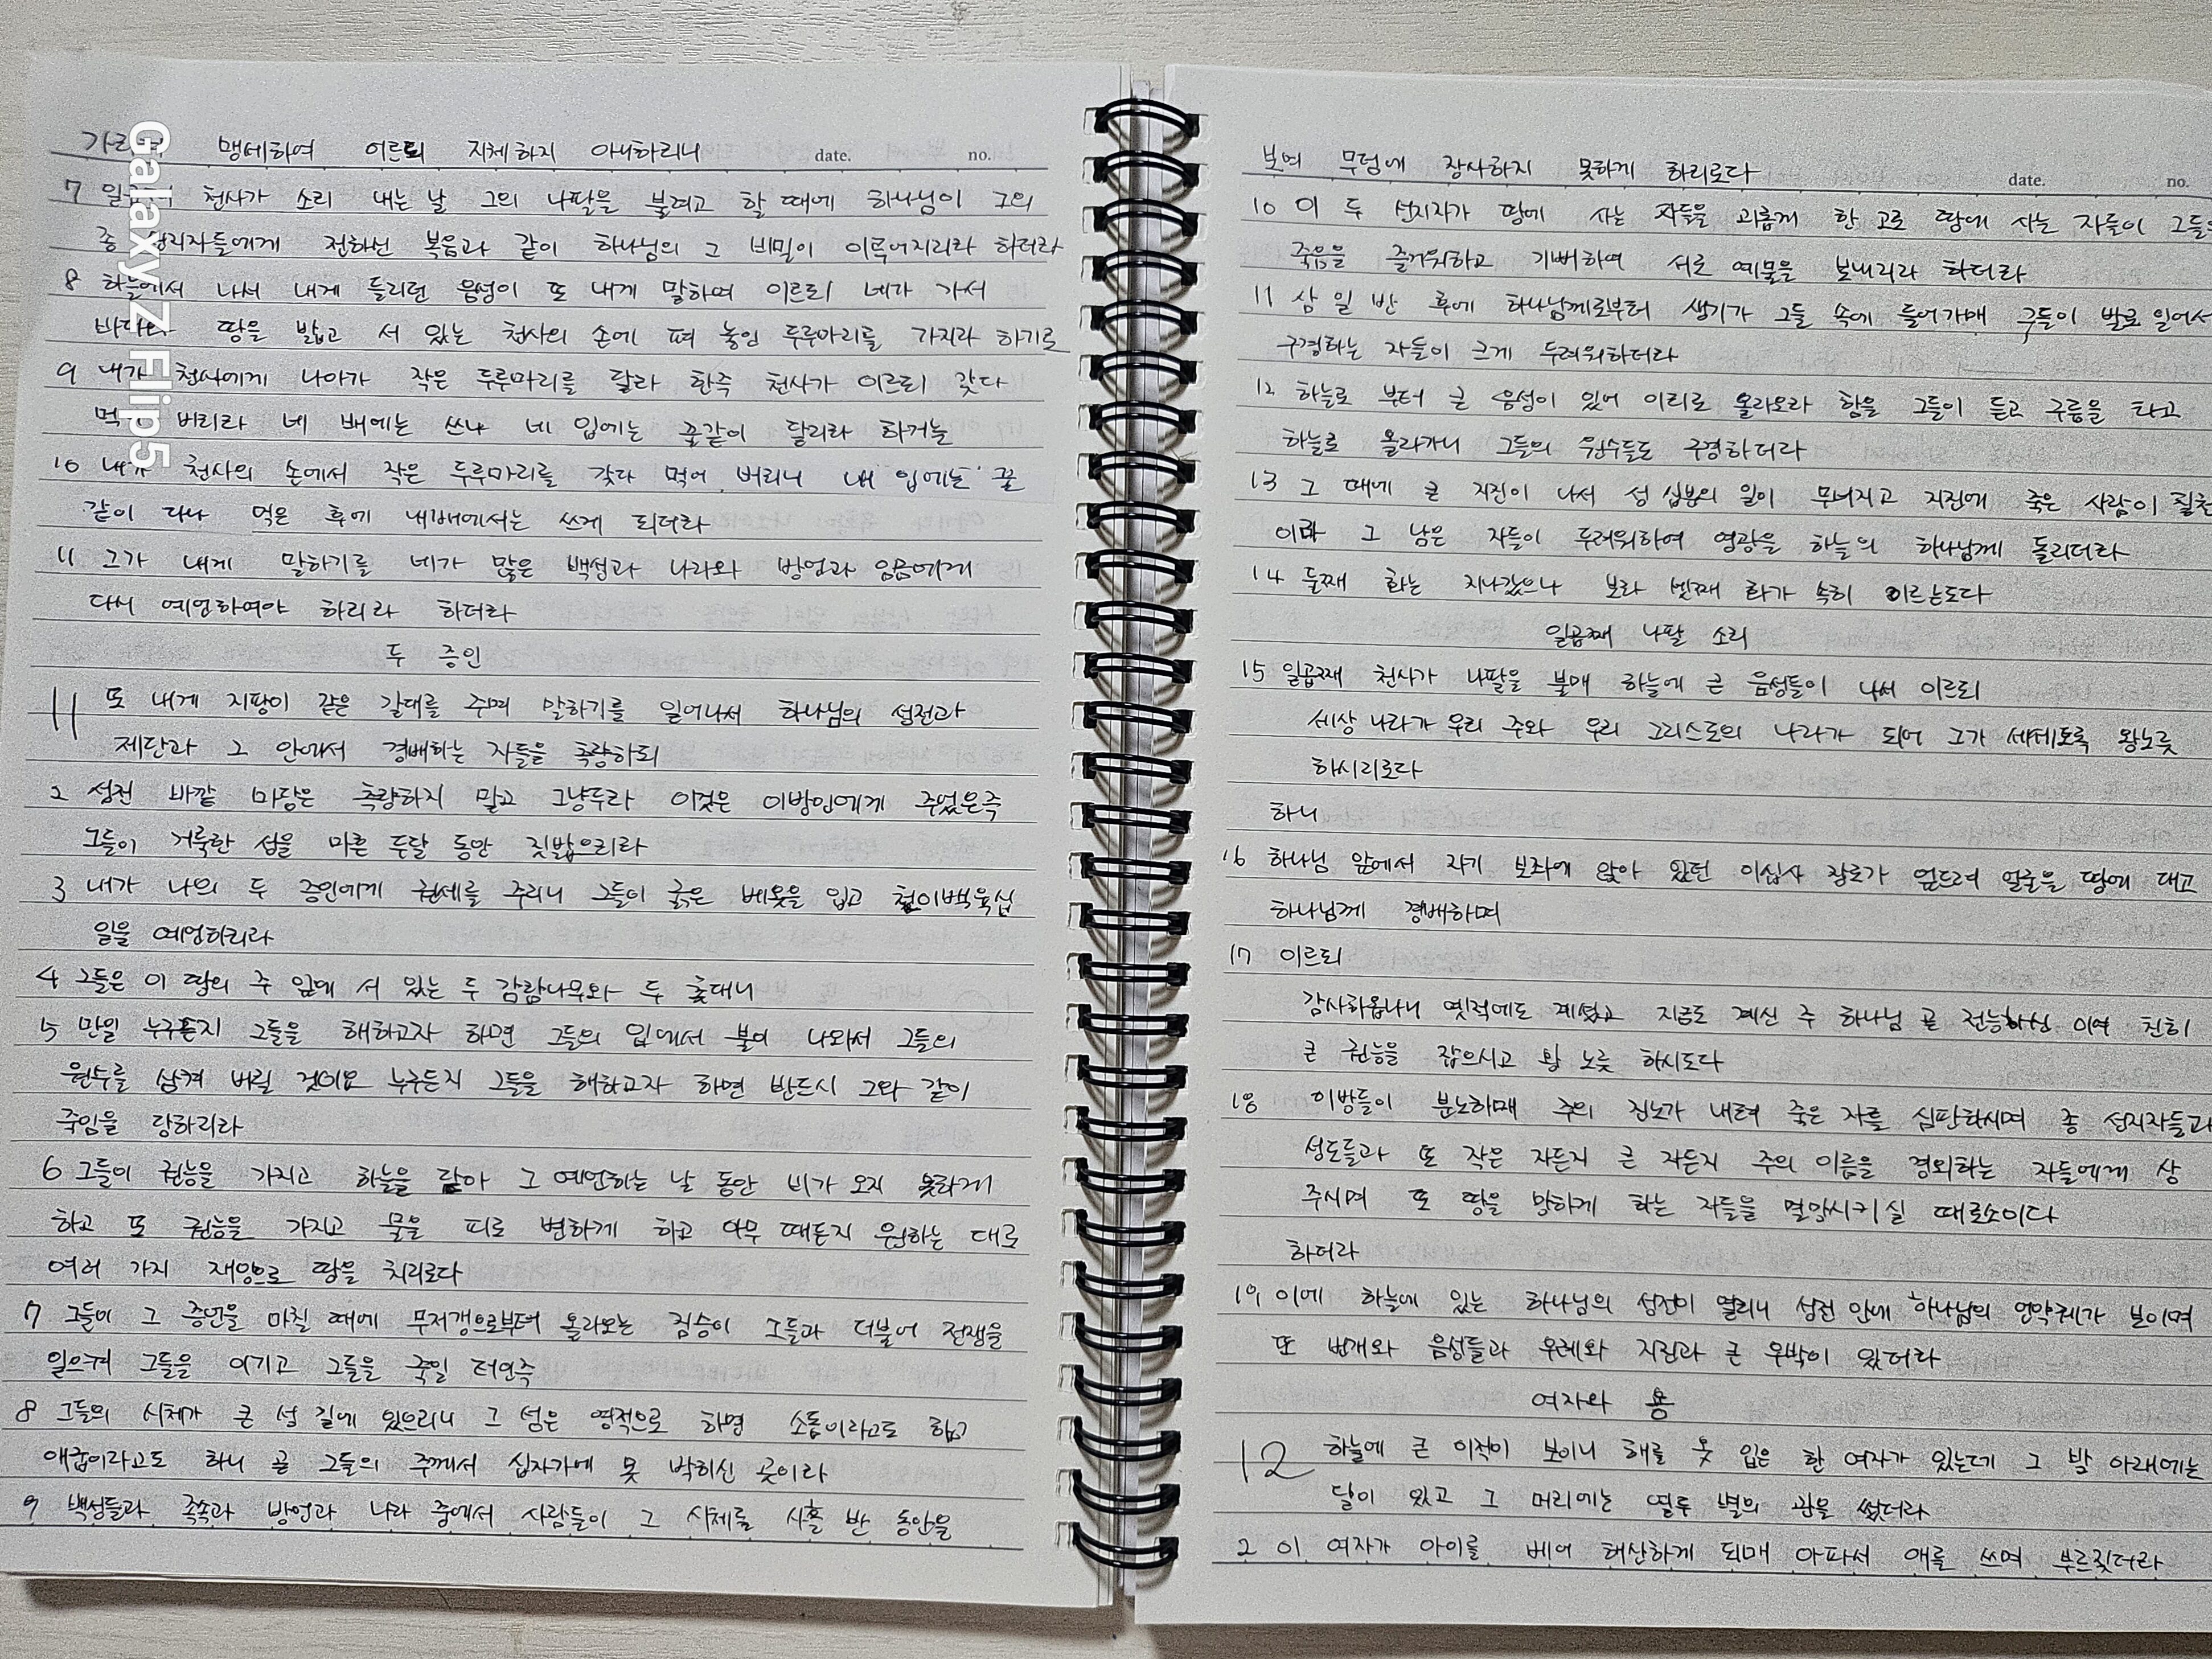 맹세하여 이르되 지체하지 아니하리니 date. no.
7 천사가 소리 내는 날 그의 나팔을 불려고 할 때에 하나님이 그의
종 선지자들에게 전하신 복음과 같이 하나님의 그 비밀이 이루어지리라 하더라
8 하늘에서 나서 내게 들리던 음성이 또 내게 말하여 이르되 네가 가서
바다와 땅을 밟고 서 있는 천사의 손에 펴 놓인 두루마리를 가지라 하기로
9 내가 천사에게 나아가 작은 두루마리를 달라 한즉 천사가 이르되 갖다
먹어 버리라 네 배에는 쓰나 네 입에는 꿀같이 달리라 하거늘
10 내가 천사의 손에서 작은 두루마리를 갖다 먹어 버리니 내 입에는 꿀
같이 다나 먹은 후에 내배에서는 쓰게 되더라
11 그가 내게 말하기를 네가 많은 백성과 나라와 방언과 임금에게
다시 예언하여야 하리라 하더라
두 증인
11 또 내게 지팡이 같은 갈대를 주며 말하기를 일어나서 하나님의 성전과
제단과 그 안에서 경배하는 자들을 측량하되
2 성전 바깥 마당은 측량하지 말고 그냥두라 이것은 이방인에게 주었은즉
그들이 거룩한 성을 마흔 두달 동안 짓밟으리라
3 내가 나의 두 증인에게 권세를 주리니 그들이 굵은 베옷을 입고 천이백육십
일을 예언하리라
4 그들은 이 땅의 주 앞에 서 있는 두 감람나무와 두 촛대니
5 만일 누구든지 그들을 해하고자 하면 그들의 입에서 불이 나와서 그들의
원수를 삼켜 버릴 것이요 누구든지 그들을 해하고자 하면 반드시 그와 같이
죽임을 당하리라
6 그들이 권능을 가지고 하늘을 닫아 그 예언하는 날 동안 비가 오지 못하게
하고 또 권능을 가지고 물을 피로 변하게 하고 아무 때든지 원하는 대로
여러 가지 재앙으로 땅을 치리로다
7 그들이 그 증언을 마칠 때에 무저갱으로부터 올라오는 짐승이 그들과 더불어 전쟁을
일으켜 그들을 이기고 그들을 죽일 터인즉
8 그들의 시체가 큰 성 길에 있으리니 그 성은 영적으로 하면 소돔이라고도 하고
애굽이라고도 하니 곧 그들의 주께서 십자가에 못 박히신 곳이라
9 백성들과 족속과 방언과 나라 중에서 사람들이 그 시체를 사흘 반 동안을
보며 무덤에 장사하지 못하게 하리로다 date. no.
10 이 두 선지자가 땅에 사는 자들을 괴롭게 한 고로 땅에 사는 자들이 그들의
죽음을 즐거워하고 기뻐하여 서로 예물을 보내리라 하더라
11 삼 일 반 후에 하나님께로부터 생기가 그들 속에 들어가매 그들이 발로 일어서
구경하는 자들이 크게 두려워하더라
12 하늘로 부터 큰 음성이 있어 이리로 올라오라 함을 그들이 듣고 구름을 타고
하늘로 올라가니 그들의 원수들도 구경하더라
13 그 때에 큰 지진이 나서 성 십분의 일이 무너지고 지진에 죽은 사람이 칠천
이라 그 남은 자들이 두려워하여 영광을 하늘의 하나님께 돌리더라
14 둘째 화는 지나갔으나 보라 셋째 화가 속히 이르는도다
일곱째 나팔 소리
15 일곱째 천사가 나팔을 불매 하늘에 큰 음성들이 나서 이르되
세상 나라가 우리 주와 우리 그리스도의 나라가 되어 그가 세세토록 왕노릇
하시리로다
하니
16 하나님 앞에서 자기 보좌에 앉아 있던 이십사 장로가 엎드려 얼굴을 땅에 대고
하나님께 경배하며
17 이르되
감사하옵나니 옛적에도 계셨고 지금도 계신 주 하나님 곧 전능하신 이여 친히
큰 권능을 잡으시고 왕 노릇 하시도다
18 이방들이 분노하매 주의 진노가 내려 죽은 자를 심판하시며 종 선지자들과
성도들과 또 작은 자든지 큰 자든지 주의 이름을 경외하는 자들에게 상
주시며 또 땅을 망하게 하는 자들을 멸망시키실 때로소이다
하더라
19 이에 하늘에 있는 하나님의 성전이 열리니 성전 안에 하나님의 언약궤가 보이며
또 번개와 음성들과 우레와 지진과 큰 우박이 있더라
여자와 용
12 하늘에 큰 이적이 보이니 해를 옷 입은 한 여자가 있는데 그 발 아래에는
달이 있고 그 머리에는 열두 별의 관을 썼더라
2 이 여자가 아이를 베어 해산하게 되매 아파서 애를 쓰며 부르짖더라
Galaxy Z Flip5